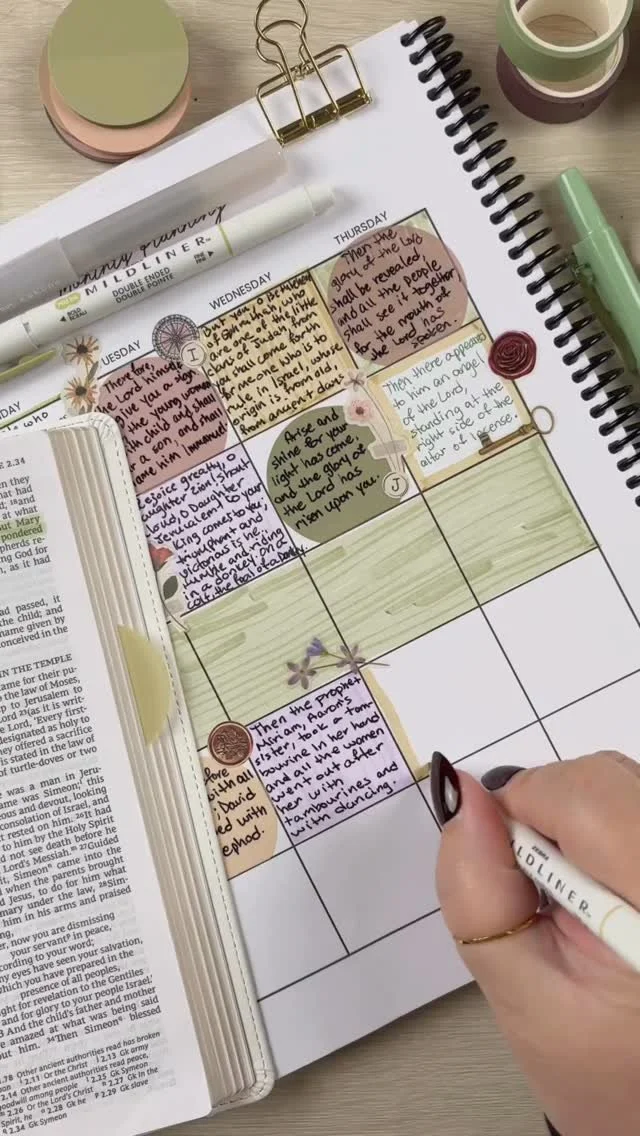 monthly planning
MILDLINER
DOUBLE ENDED
DOUBLE POINTE
BOLD
BISEAU
FINE
FIN
UESDAY
WEDNESDAY
THURSDAY
Therefore,
the Lord himself
give you a sign
the young woman
with child and shall
a son, and shall
name him Immanuel
J
But you, O Bethlehem
of Ephrathah, who
are one of the little
clans of Judah from
you shall come forth
for me one who is to
rule in Israel, whose
origin is from old,
from ancient days.
Then the
glory of the Lord
shall be revealed,
and all the people
shall see it together,
for the mouth of
the Lord has
spoken.
who
Rejoice greatly, O
daughter Zion! Shout
aloud, O Daughter
Jerusalem! to your
king comes to you,
triumphant and
victorious is he,
humble and riding
in a donkey, on a
colt, the foal of a donkey.
Arise and
shine for your
light has come,
and the glory of
the Lord has
risen upon you.
J
Then there appeared
to him an angel
of the Lord,
standing at the
right side of the
altar of incense.
fore
with all
David
ed with
ephod.
Then the prophet
Miriam, Aaron's
sister, took a tam-
bourine in her hand
and all the women
went out after
her with
tambourines and
with dancing.
ZEBRA
MILDLINER
E 2.34
n they
had
18and
at what
But Mary
pondered
pherds re-
ing God for
n, as it had
had passed, it
the child; and
name given by
conceived in the
IN THE TEMPLE
came for their pu-
the law of Moses,
to Jerusalem to
Lord 23(as it is writ-
he Lord, 'Every first-
designated as holy to
they offered a sacrifice
is stated in the law of
of turtle-doves or two
was a man in Jeru-
name was Simeon; this
ous and devout, looking
consolation of Israel, and
rested on him. 26It had
to him by the Holy Spirit
not see death before he
Lord's Messiah. 27Guided
Simeon came into the
when the parents brought
Jesus, to do for him what
mary under the law, 28Sim-
him in his arms and praised
ng,
r, now you are dismissing
your servant in peace,
ccording to your word;
y eyes have seen your salvation,
which you have prepared in the
presence of all peoples,
ght for revelation to the Gentiles
and for glory to your people Israel.'
And the child's father and mother
amazed at what was being said
out him. 34Then Simeon blessed
1.78 Other ancient authorities read has broken
2.11 Or the Christ
2.13 Gk army
2.14 Other ancient authorities read peace,
goodwill among people
2.25 Gk Symeon
2.26 Or the Lord's Christ
2.27 Gk In the
Spirit, he
2.28 Gk he
2.29 Gk slave
2.34 Gk Symeon